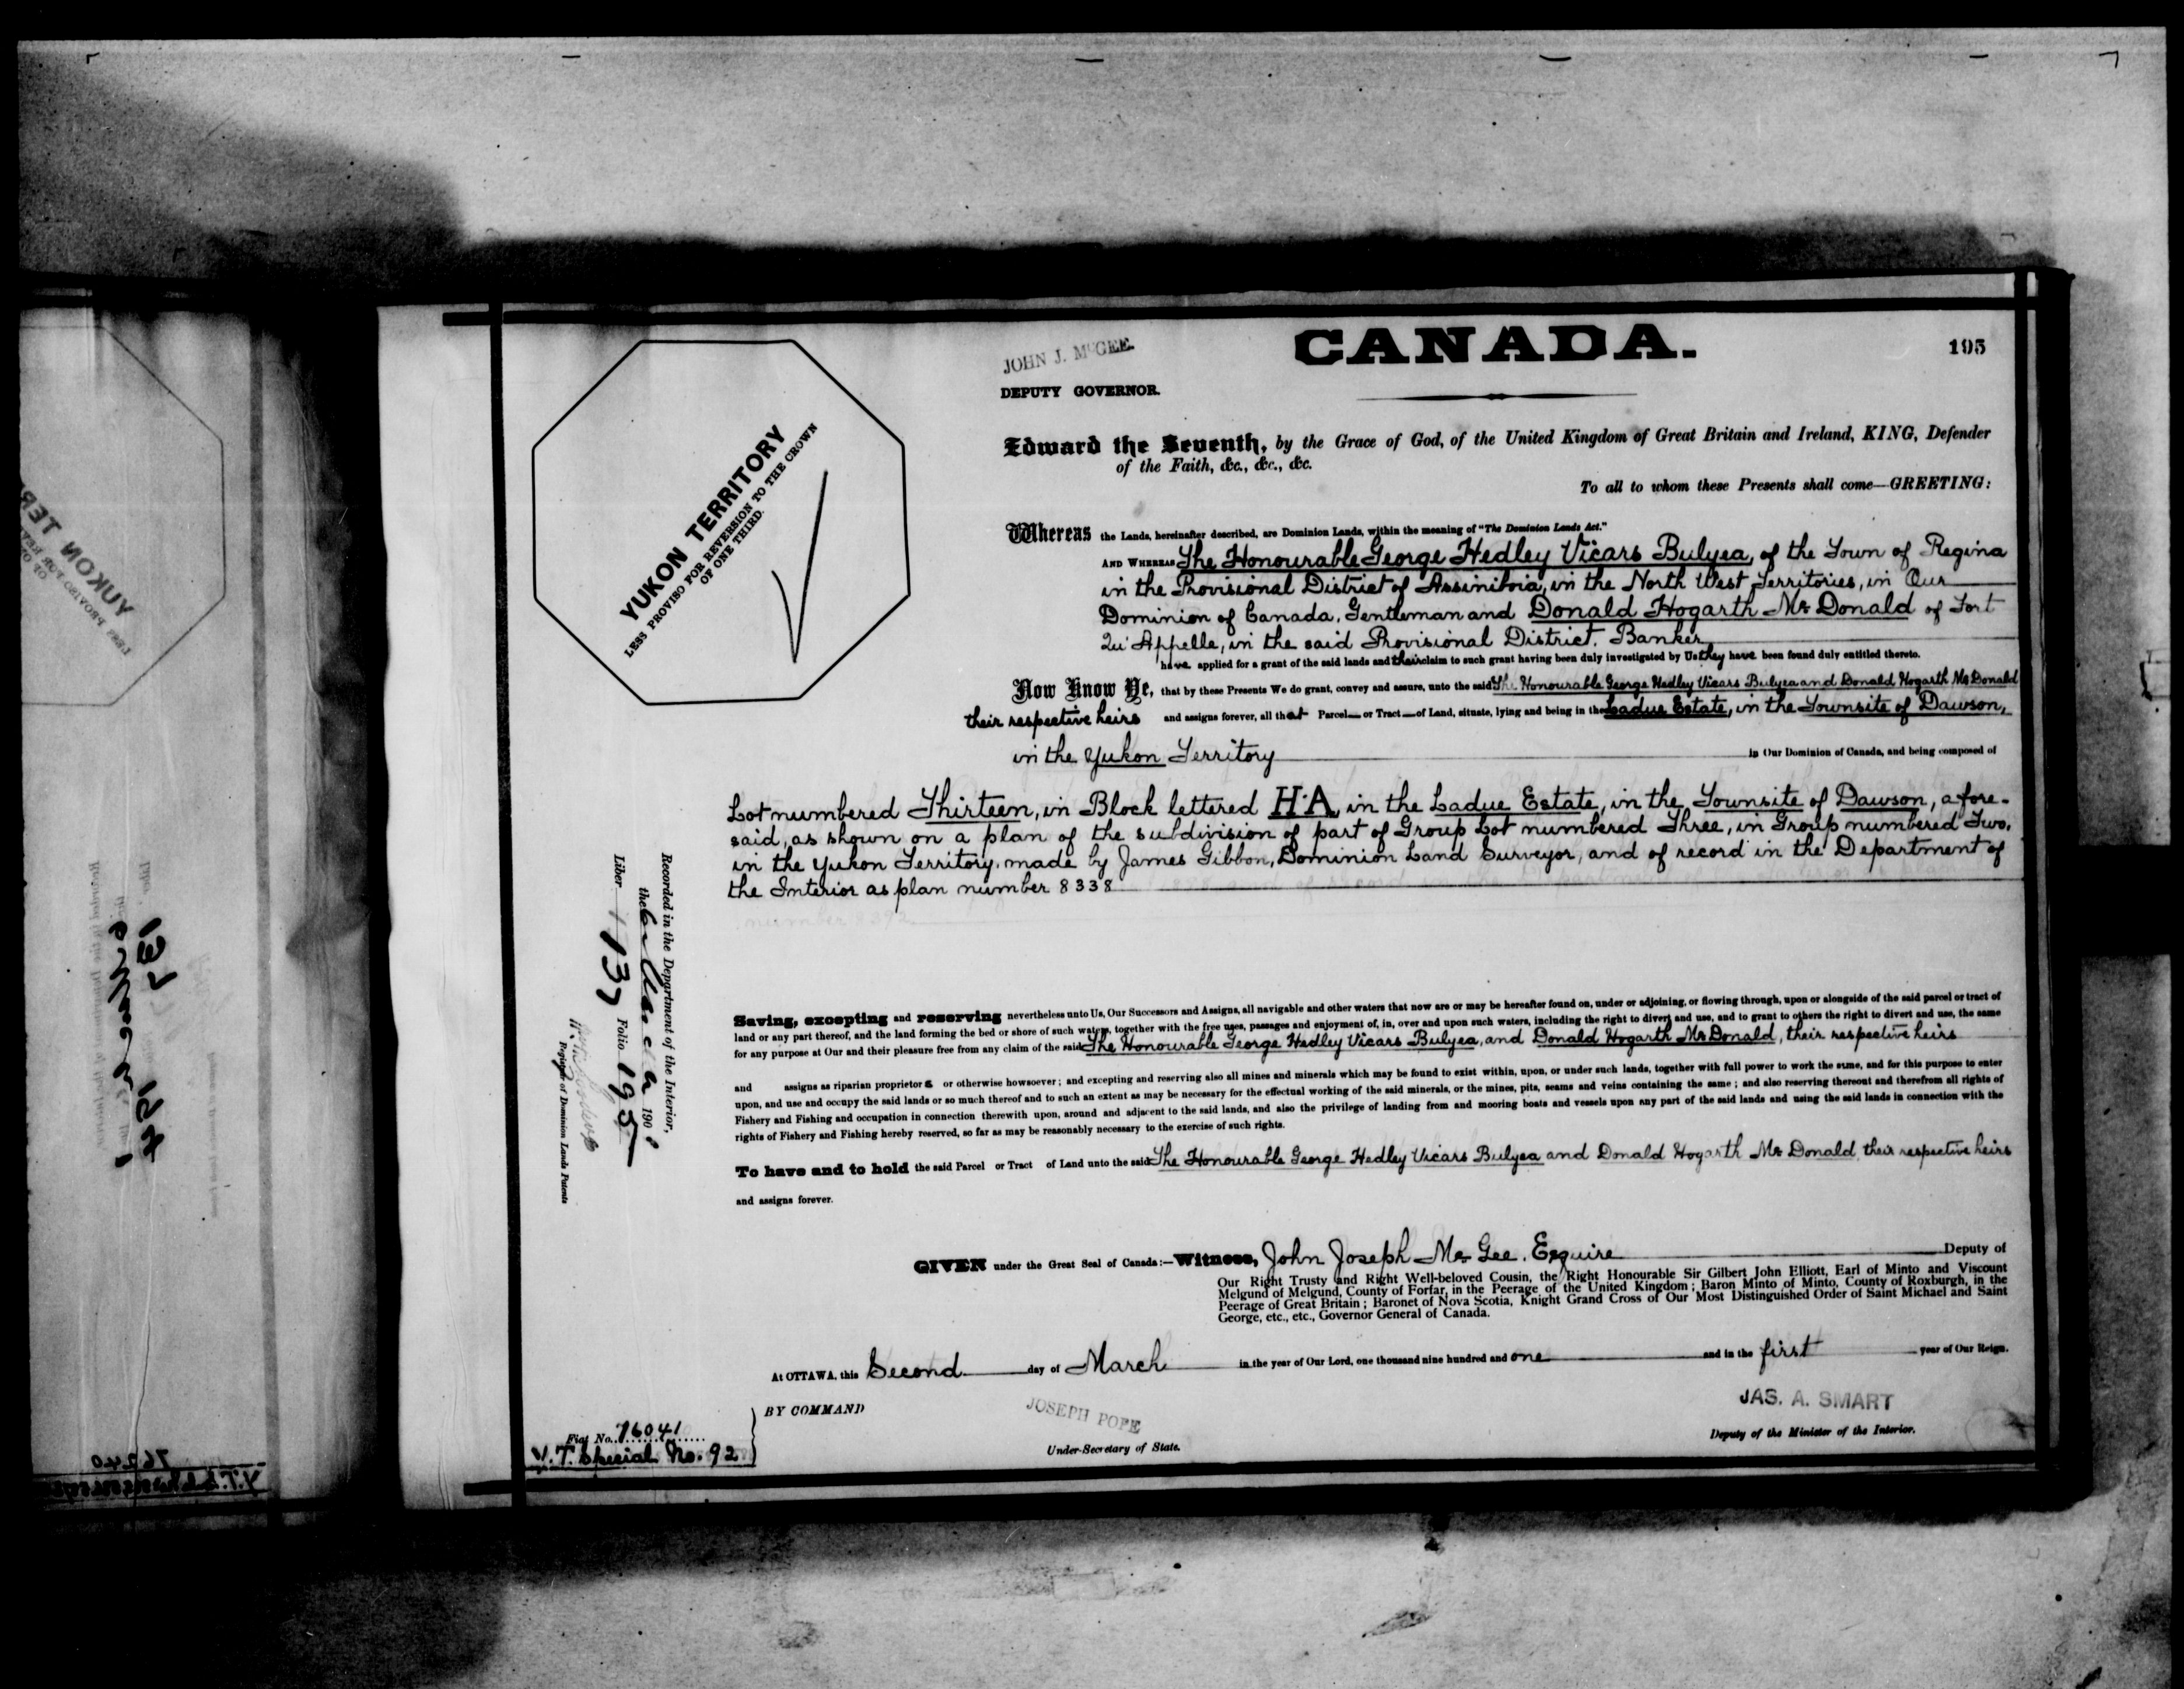 CANADA.
195
JOHN J. McGEE.
DEPUTY GOVERNOR.
YUKON TERRITORY
LESS PROVISO FOR REVERSION TO THE CROWN
OF ONE THIRD.
Edward the Seventh, by the Grace of God, of the United Kingdom of Great Britain and Ireland, KING, Defender
of the Faith, &c., &c., &c.
To all to whom these Presents shall come—GREETING:
Whereas the Lands, hereinafter described, are Dominion Lands, within the meaning of "The Dominion Lands Act."
AND WHEREAS The Honourable George Hedley Vicars Bulyea, of the Town of Regina
in the Provisional District of Assiniboia, in the North West Territories, in Our
Dominion of Canada, Gentleman and Donald Hogarth McDonald of Fort
Qu'Appelle, in the said Provisional District, Banker
have applied for a grant of the said lands and their claim to such grant having been duly investigated by Us they have been found duly entitled thereto.
Now Know Ye, that by these Presents We do grant, convey and assure, unto the said The Honourable George Hedley Vicars Bulyea and Donald Hogarth McDonald
their respective heirs and assigns forever, all that Parcel or Tract of Land, situate, lying and being in the Ladue Estate, in the Townsite of Dawson,
in the Yukon Territory in Our Dominion of Canada, and being composed of
Lot numbered Thirteen, in Block lettered H.A, in the Ladue Estate, in the Townsite of Dawson, afore-
said, as shown on a plan of the subdivision of part of Group Lot numbered Three, in Group numbered Two,
in the Yukon Territory, made by James Gibbon, Dominion Land Surveyor, and of record in the Department of
the Interior as plan number 8338
Saving, excepting and reserving nevertheless unto Us, Our Successors and Assigns, all navigable and other waters that now are or may be hereafter found on, under or adjoining, or flowing through, upon or alongside of the said parcel or tract of
land or any part thereof, and the land forming the bed or shore of such waters, together with the free uses, passages and enjoyment of, in, over and upon such waters, including the right to divert and use, and to grant to others the right to divert and use, the same
for any purpose at Our and their pleasure free from any claim of the said The Honourable George Hedley Vicars Bulyea, and Donald Hogarth McDonald, their respective heirs
and assigns as riparian proprietors or otherwise howsoever; and excepting and reserving also all mines and minerals which may be found to exist within, upon, or under such lands, together with full power to work the same, and for this purpose to enter
upon, and use and occupy the said lands or so much thereof and to such an extent as may be necessary for the effectual working of the said minerals, or the mines, pits, seams and veins containing the same; and also reserving thereout and therefrom all rights of
Fishery and Fishing and occupation in connection therewith upon, around and adjacent to the said lands, and also the privilege of landing from and mooring boats and vessels upon any part of the said lands and using the said lands in connection with the
rights of Fishery and Fishing hereby reserved, so far as may be reasonably necessary to the exercise of such rights.
To have and to hold the said Parcel or Tract of Land unto the said The Honourable George Hedley Vicars Bulyea and Donald Hogarth McDonald, their respective heirs
and assigns forever.
GIVEN under the Great Seal of Canada:—Witness, John Joseph McGee, Esquire Deputy of
Our Right Trusty and Right Well-beloved Cousin, the Right Honourable Sir Gilbert John Elliott, Earl of Minto and Viscount
Melgund of Melgund, County of Forfar, in the Peerage of the United Kingdom; Baron Minto of Minto, County of Roxburgh, in the
Peerage of Great Britain; Baronet of Nova Scotia, Knight Grand Cross of Our Most Distinguished Order of Saint Michael and Saint
George, etc., etc., Governor General of Canada.
At OTTAWA, this Second day of March in the year of Our Lord, one thousand nine hundred and one and in the first year of Our Reign.
BY COMMAND
JOSEPH POPE
Under-Secretary of State.
JAS. A. SMART
Deputy of the Minister of the Interior.
Fiat No. 76041
Y.T. Special No. 92
Recorded in the Department of the Interior,
the 190
Liber 137 Folio 195
Registrar of Dominion Lands Patents